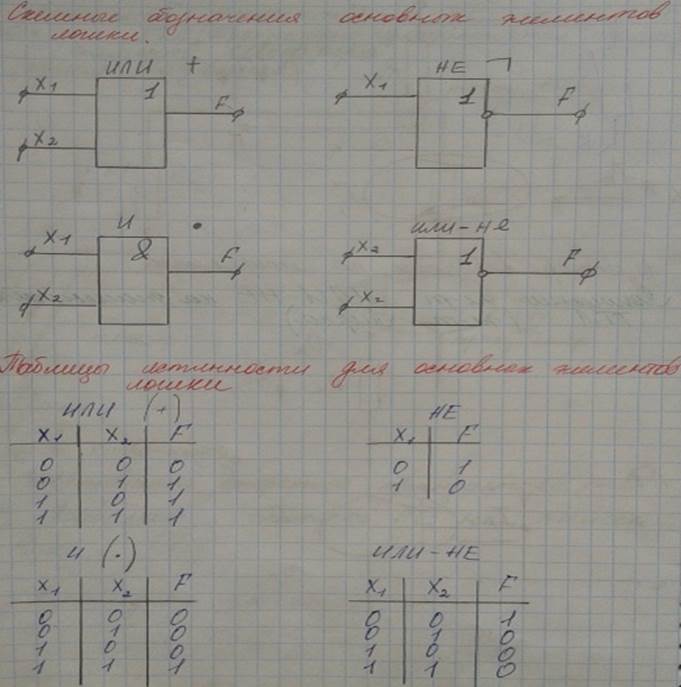 Схемные обозначения основных элементов
логики.
ИЛИ + НЕ ¬
X1 1 F X1 1 F
X2
И • ИЛИ-НЕ
X1 & F X2 1 F
X2 X2
Таблицы истинности для основных элементов
логики
ИЛИ (+) НЕ
X1 X2 F X1 F
0 0 0 0 1
0 1 1 1 0
1 0 1
1 1 1
И (·) ИЛИ-НЕ
X1 X2 F X1 X2 F
0 0 0 0 0 1
0 1 0 0 1 0
1 0 0 1 0 0
1 1 1 1 1 0